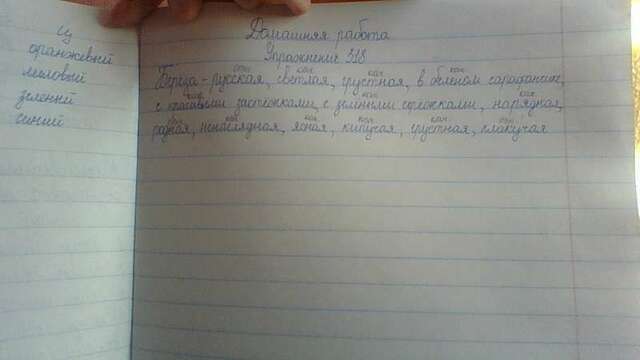 сл
оранжевый
лиловый
зелений
синий
Домашняя работа
Упражнение 318
Береза - русская, светлая, грустная, в беленом сарафанчике,
с красивыми застежками, с зелёными сережками, нарядная,
родная, ненаглядная, ясная, кипучая, грустная, плакучая